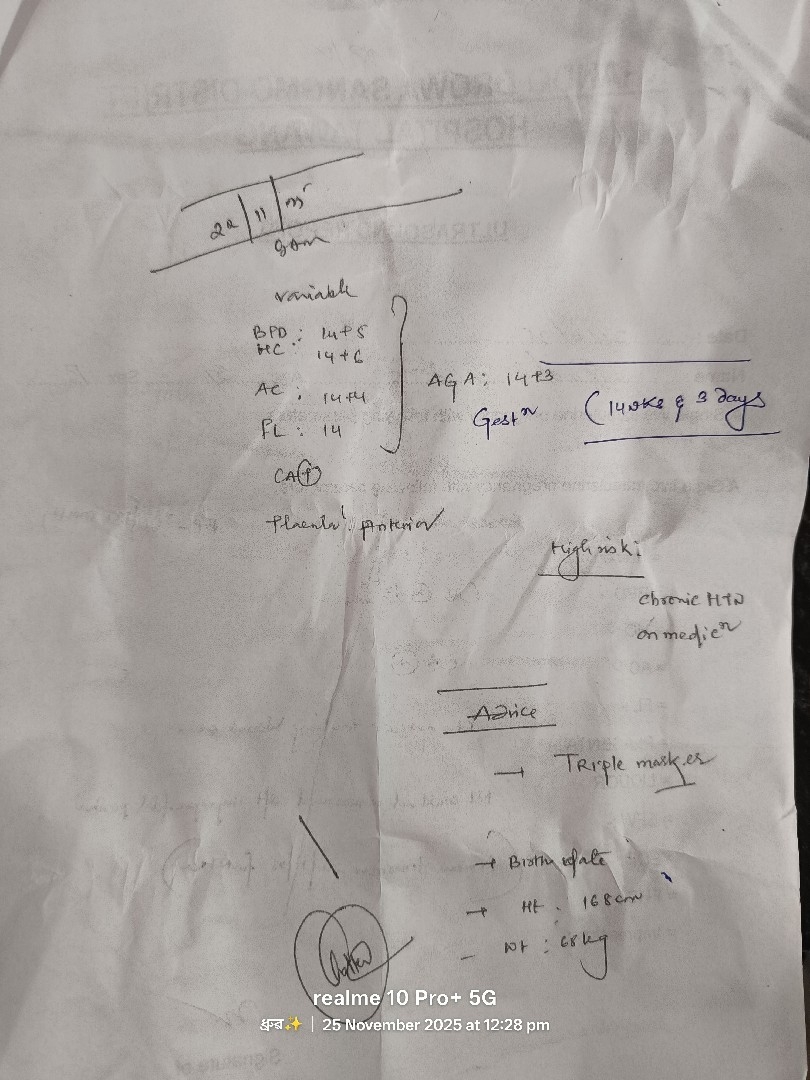 22 | 11 |
variable
BPD : 14+5
HC : 14+6
AC : 14+4
FL : 14
AGA : 14+3
Gestⁿ (14wks & 3 days
CA(+)
Placenta : Anterior
High risk :
chronic HTN
on medicⁿ
Advice
→ Triple marker
→ Birth date
→ Ht : 168cm
- Wt : 68kg
realme 10 Pro+ 5G
ধ্রুব✨ | 25 November 2025 at 12:28 pm